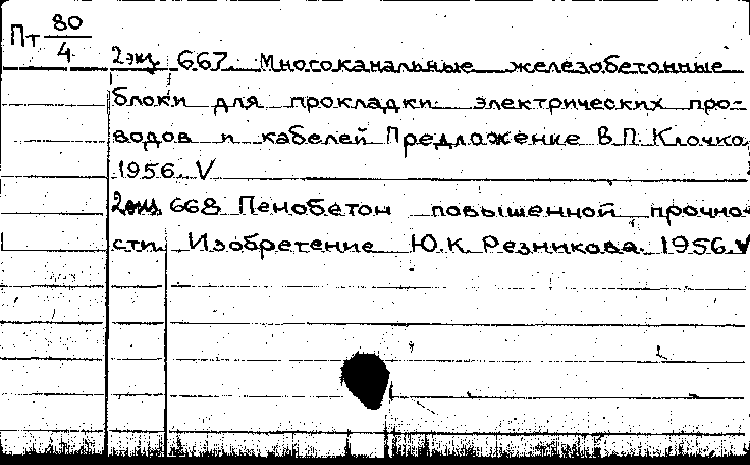 Пт 80/4
2 экз 667. Многоканальные железобетонные
блоки для прокладки электрических про-
водов и кабелей Предложение В.П. Клочко
1956. V
2 экз 668 Пенобетон повышенной прочно-
сти. Изобретение Ю.К. Резникова. 1956. V